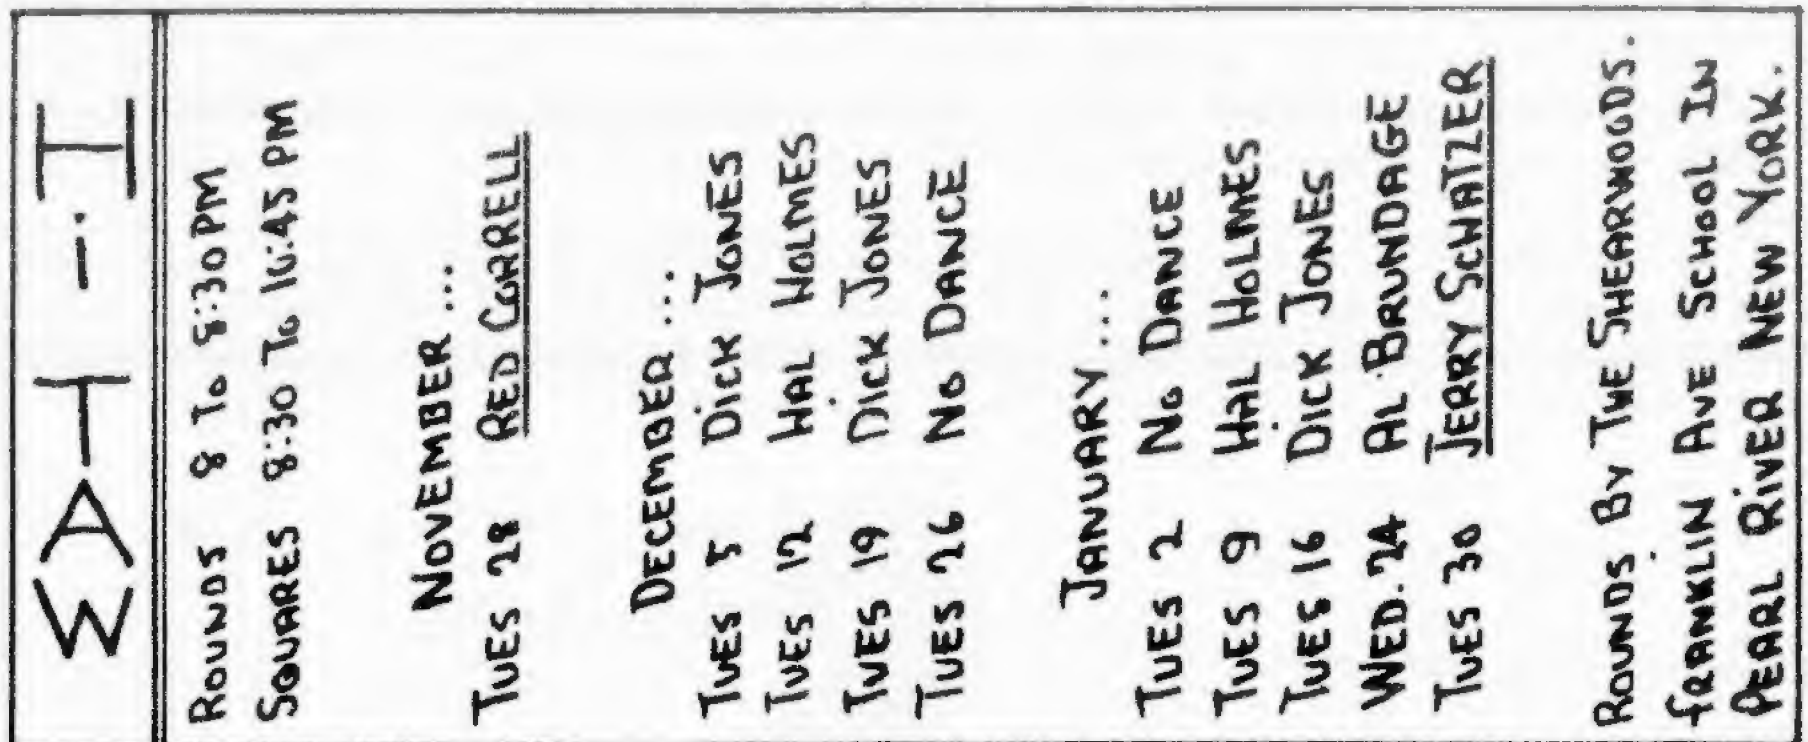 WAT-·-I
ROUNDS 8 To 8:30 PM
SQUARES 8:30 To 10:45 PM
NOVEMBER ...
TUES 28 RED CORRELL
DECEMBER ...
TUES 5 DICK JONES
TUES 12 HAL HOLMES
TUES 19 DICK JONES
TUES 26 No DANCE
JANUARY ...
TUES 2 No DANCE
TUES 9 HAL HOLMES
TUES 16 DICK JONES
WED. 24 AL BRUNDAGE
TUES 30 JERRY SCHATZER
ROUNDS BY THE SHEARWOODS.
FRANKLIN AVE SCHOOL IN
PEARL RIVER NEW YORK.